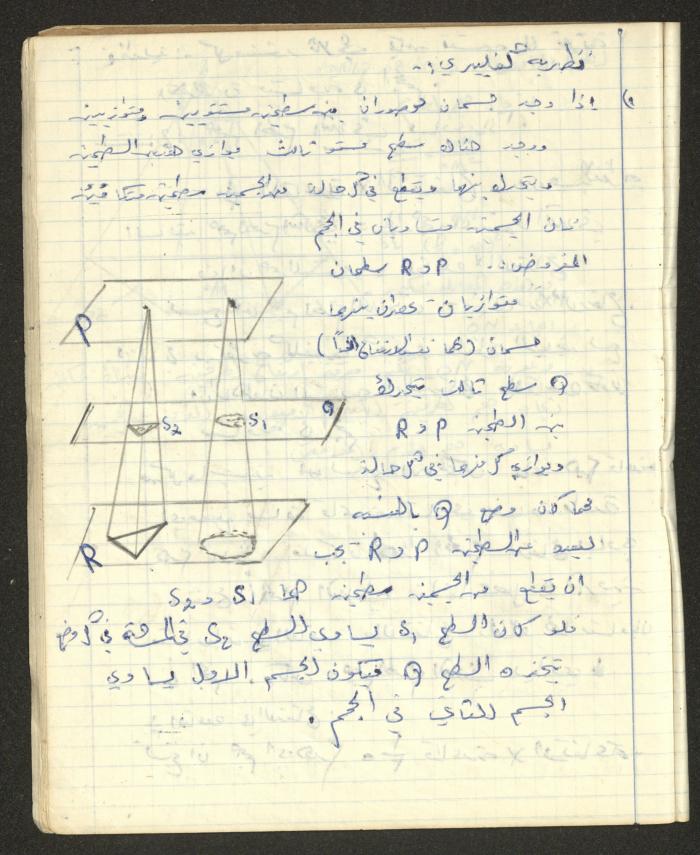 نظرية كفليري :-
١) إذا وجد جسمان محصوران بين سطحين مستويين ومتوازيين
ووجد هناك سطح مستو ثالث موازي هذين السطحين
ويتحرك بينهما ويقطع في كل حالة من الجسمين سطحين متكافئين
فان الجسمين متساويان في الحجم
المفروض :. P و R سطحان
متوازيان يحصران بينهما
جسمان (لهما نفس الارتفاع)
Q سطح ثالث يتحرك
بين السطحين P و R
ويوازي كل منهما في كل حالة
فمهما كان وضع Q بالنسبه
للبعد عن السطحين P و R يجب
ان يقطع من الجسمين سطحين هما S₁ و S₂
فلو كان السطح S₁ يساوي السطح S₂ في المساحة في كل وضع
يتخذه السطح Q فيكون الجسم الاول يساوي
الجسم الثاني في الحجم .
P
S₂
S₁
Q
R